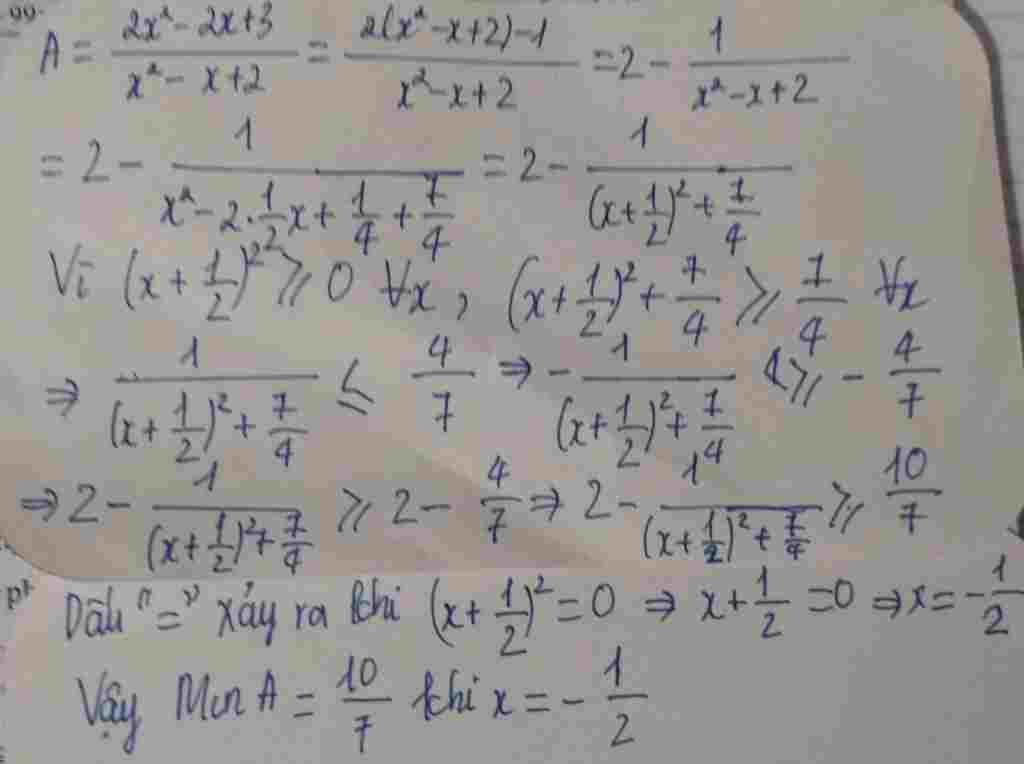 99.
A = \frac{2x²-2x+3}{x²-x+2} = \frac{2(x²-x+2)-1}{x²-x+2} = 2 - \frac{1}{x²-x+2}
= 2 - \frac{1}{x²-2.\frac{1}{2}x+\frac{1}{4}+\frac{7}{4}} = 2 - \frac{1}{(x+\frac{1}{2})²+\frac{7}{4}}
Vì (x+\frac{1}{2})² ⩾ 0 ∀x, (x+\frac{1}{2})²+\frac{7}{4} ⩾ \frac{7}{4} ∀x
⇒ \frac{1}{(x+\frac{1}{2})²+\frac{7}{4}} ≤ \frac{4}{7} ⇒ -\frac{1}{(x+\frac{1}{2})²+\frac{7}{4}} ⩾ -\frac{4}{7}
⇒ 2 - \frac{1}{(x+\frac{1}{2})²+\frac{7}{4}} ⩾ 2 - \frac{4}{7} ⇒ 2 - \frac{1}{(x+\frac{1}{2})²+\frac{7}{4}} ⩾ \frac{10}{7}
Dấu "=" xảy ra khi (x+\frac{1}{2})² = 0 ⇒ x+\frac{1}{2} = 0 ⇒ x = -\frac{1}{2}
Vậy Min A = \frac{10}{7} khi x = -\frac{1}{2}